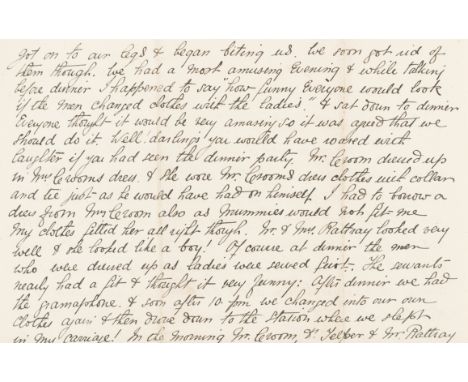 got on to our legs & began biting us. We soon got rid of
them though. We had a most amusing Evening & while talking
before dinner I happened to say "how funny Everyone would look
if the men changed clothes with the ladies." & sat down to dinner
Everyone thought it would be very amusing so it was agreed that we
should do it. Well! darlings you would have roared with
laughter if you had seen the dinner party. Mr. Croom dressed up
in Mrs Croom's dress & she wore Mr. Croom's dress clothes with collar
and tie just as he would have had on himself. I had to borrow a
dress from Mrs Croom also as Mummies would not fit me
My clothes fitted her all right though. Mr. & Mrs. Rattray looked very
well & she looked like a boy! Of course at dinner the men
who were dressed up as ladies were served first. The servants
nearly had a fit & thought it very funny. After dinner we had
the gramaphone & soon after 10 pm we changed into our own
clothes again & then drove down to the station where we slept
in my carriage! In the morning Mr. Croom, Dr. Telfer & Mr. Rattray